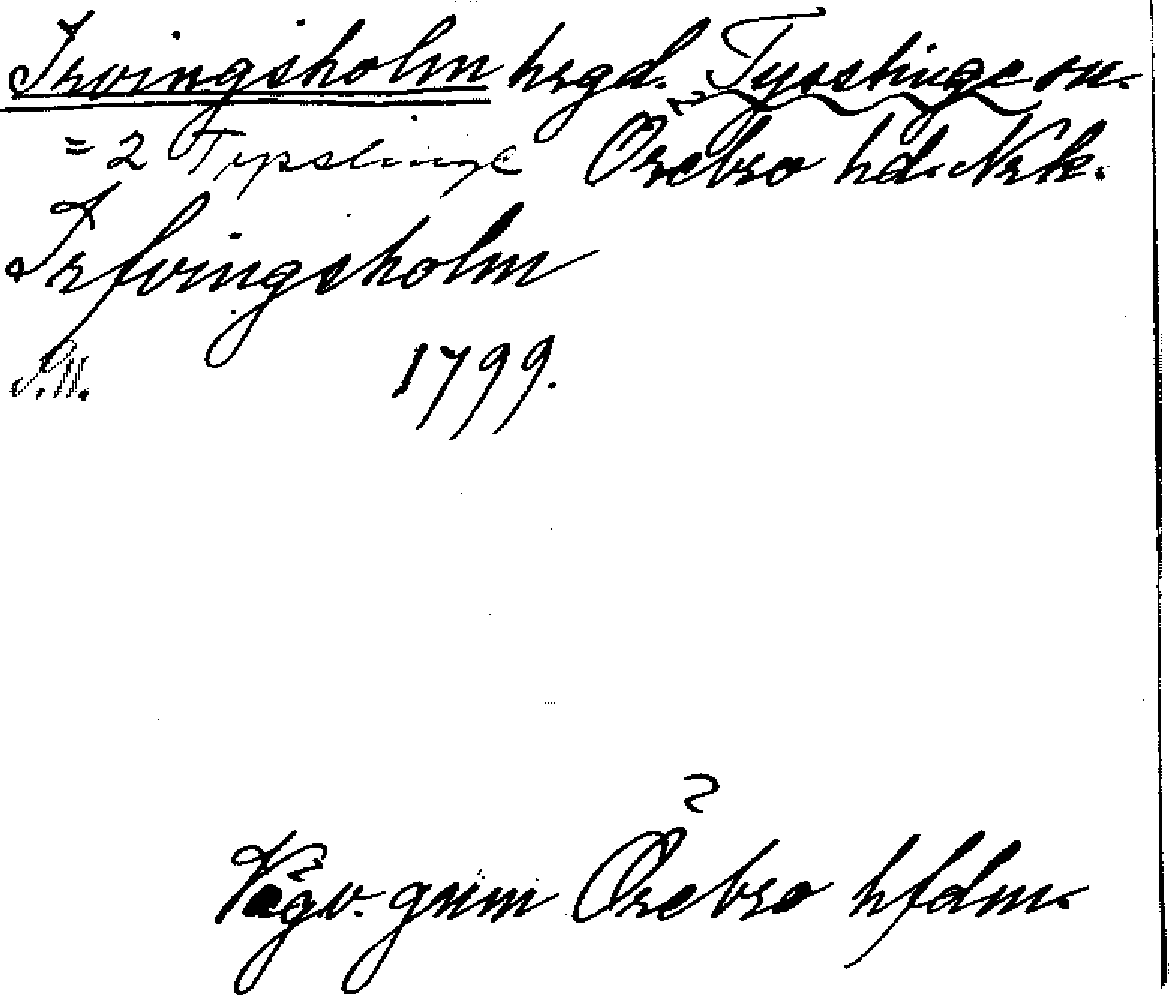 Irvingsholm hrgd. Tysslinge sn.
= 2 Tysslinge Örebro hd. Nrk.
Irfvingsholm
1799.
Vägv. gnm Örebro hfdm.